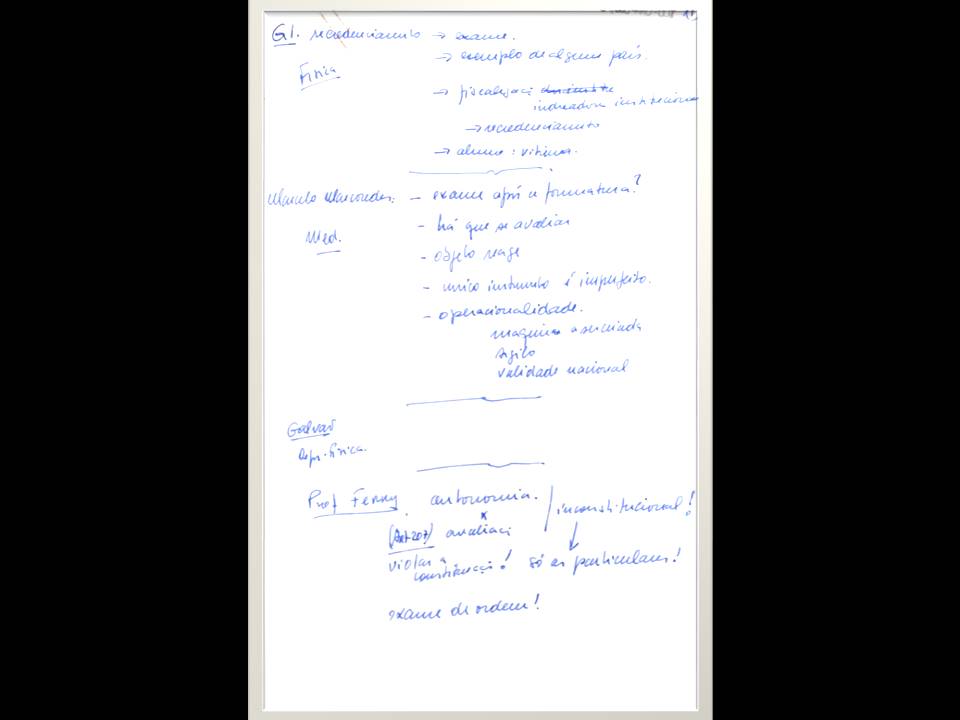 G1. recredenciamento → exame.
→ exemplo de algum país.
Física
→ fiscalizaçã
indicadores instituciona
→ recredenciamento
→ aluno: vítima.
Marcelo Marcondes: - exame após a formatura?
- há que se avaliar
Med.
- objeto reage
- único instrumento é imperfeito.
- operacionalidade.
maquina associada
sigilo
validade nacional
Galvão
Dep. Física.
Prof Ferry. autonomia. inconstitucional!
x
(Art 207) avaliaçã
violar a constituiçã! só as particulares!
exame de ordem!